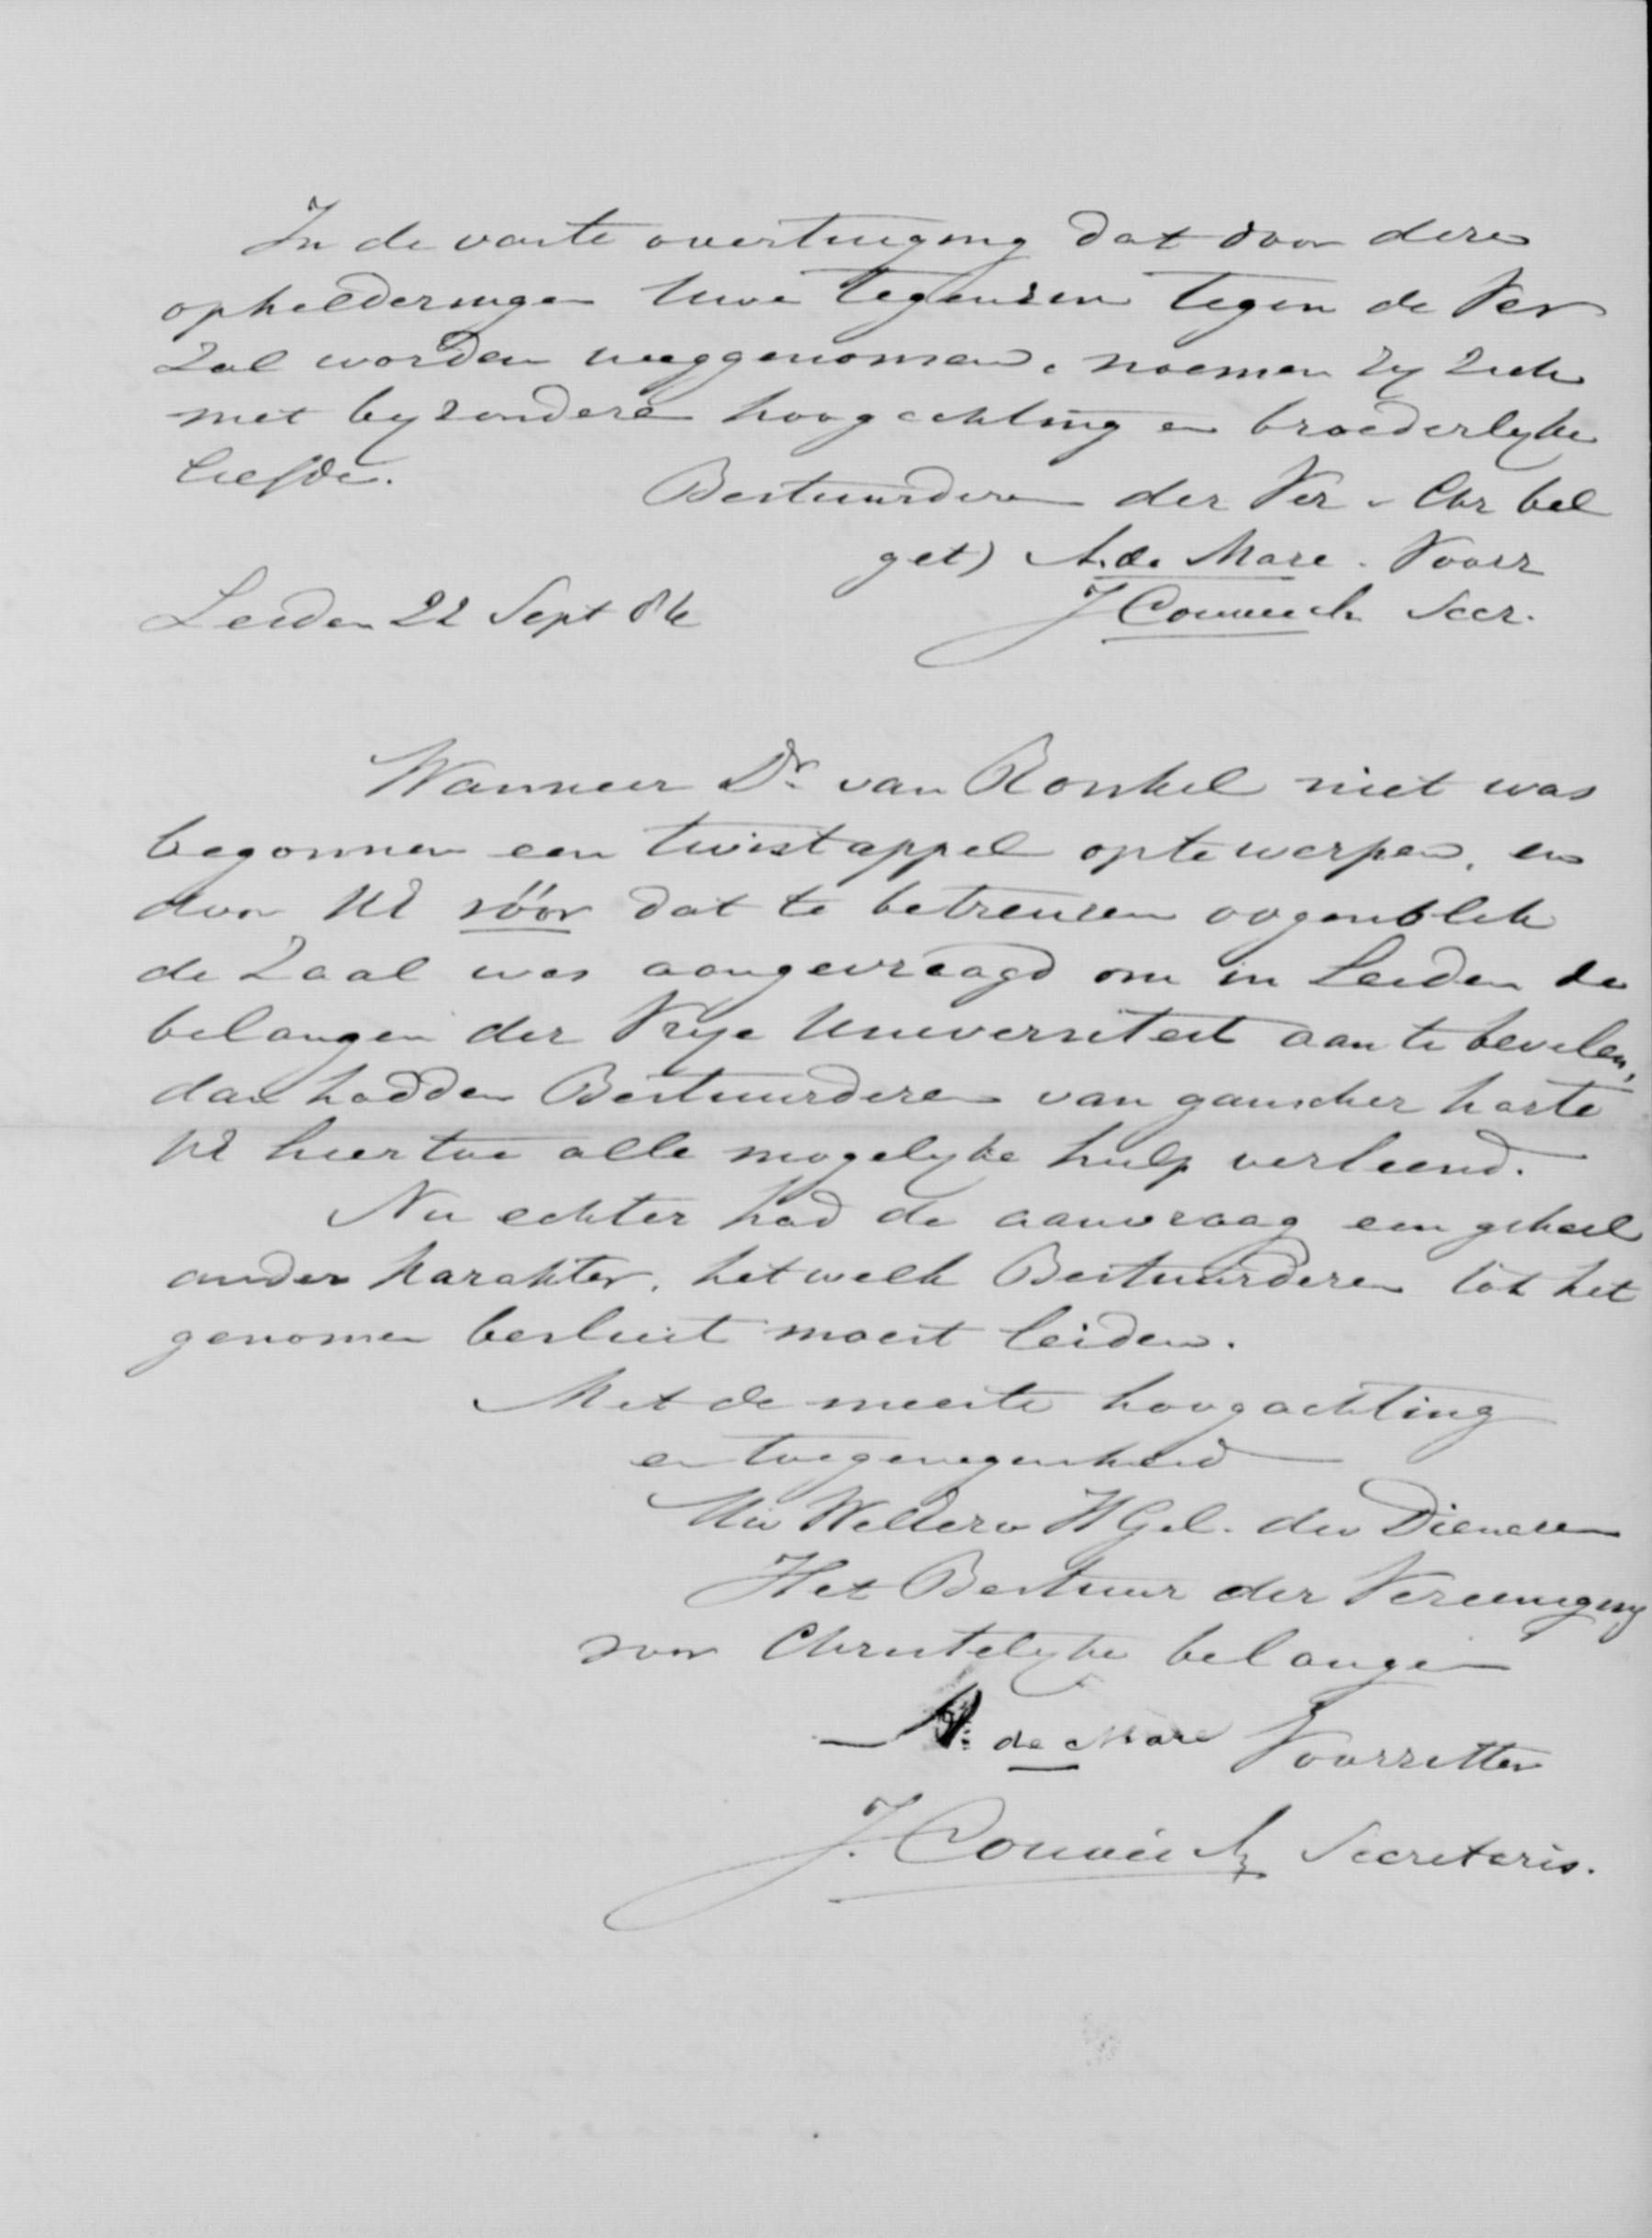 In de vaste overtuiging dat door deze
ophelderingen Uwe tegenzin tegen de Ver
zal worden weggenomen, noemen zy zich
met byzondere hoogachting en broederlyke
liefde.
Bestuurderen der Ver v Chr bel
get) A. de Mare. Voorz
Leiden 22 Sept 86
J Couvée Secr.
Wanneer Dr. van Ronkel niet was
begonnen een twistappel optewerpen, en
door UE vóór dat te betreuren oogenblik
de Zaal was aangevraagd om in Leiden de
belangen der Vrye Universiteit aan te bevelen,
dan hadden Bestuurderen van ganscher harte
UE hiertoe alle mogelyke hulp verleend.
Nu echter had de aanvraag een geheel
ander karakter, hetwelk Bestuurderen tot het
genomen besluit moest leiden.
Met de meeste hoogachting
en toegenegenheid
Uw WelEerw ZGel. dw Dienaren
Het Bestuur der Vereeniging
voor Christelyke belangen
A. de Mare Voorzitter
J. Couvée Secretaris.